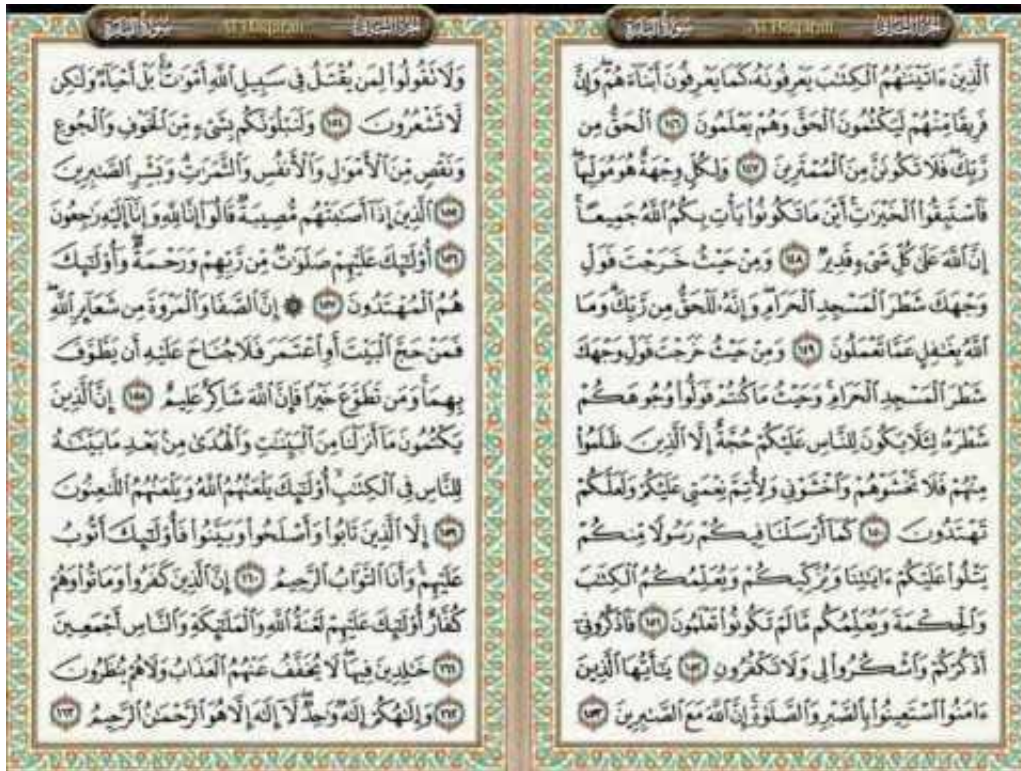 الجزء الثاني Al-Baqarah سورة البقرة
ٱلَّذِينَ ءَاتَيْنَٰهُمُ ٱلْكِتَٰبَ يَعْرِفُونَهُۥ كَمَا يَعْرِفُونَ أَبْنَآءَهُمْ وَإِنَّ
فَرِيقًا مِّنْهُمْ لَيَكْتُمُونَ ٱلْحَقَّ وَهُمْ يَعْلَمُونَ ١٤٦ ٱلْحَقُّ مِن
رَّبِّكَ فَلَا تَكُونَنَّ مِنَ ٱلْمُمْتَرِينَ ١٤٧ وَلِكُلٍّ وِجْهَةٌ هُوَ مُوَلِّيهَا
فَٱسْتَبِقُوا۟ ٱلْخَيْرَٰتِ أَيْنَ مَا تَكُونُوا۟ يَأْتِ بِكُمُ ٱللَّهُ جَمِيعًا
إِنَّ ٱللَّهَ عَلَىٰ كُلِّ شَىْءٍ قَدِيرٌ ١٤٨ وَمِنْ حَيْثُ خَرَجْتَ فَوَلِّ
وَجْهَكَ شَطْرَ ٱلْمَسْجِدِ ٱلْحَرَامِ وَإِنَّهُۥ لَلْحَقُّ مِن رَّبِّكَ وَمَا
ٱللَّهُ بِغَٰفِلٍ عَمَّا تَعْمَلُونَ ١٤٩ وَمِنْ حَيْثُ خَرَجْتَ فَوَلِّ وَجْهَكَ
شَطْرَ ٱلْمَسْجِدِ ٱلْحَرَامِ وَحَيْثُ مَا كُنتُمْ فَوَلُّوا۟ وُجُوهَكُمْ
شَطْرَهُۥ لِئَلَّا يَكُونَ لِلنَّاسِ عَلَيْكُمْ حُجَّةٌ إِلَّا ٱلَّذِينَ ظَلَمُوا۟
مِنْهُمْ فَلَا تَخْشَوْهُمْ وَٱخْشَوْنِى وَلِأُتِمَّ نِعْمَتِى عَلَيْكُمْ وَلَعَلَّكُمْ
تَهْتَدُونَ ١٥٠ كَمَآ أَرْسَلْنَا فِيكُمْ رَسُولًا مِّنكُمْ
يَتْلُوا۟ عَلَيْكُمْ ءَايَٰتِنَا وَيُزَكِّيكُمْ وَيُعَلِّمُكُمُ ٱلْكِتَٰبَ
وَٱلْحِكْمَةَ وَيُعَلِّمُكُم مَّا لَمْ تَكُونُوا۟ تَعْلَمُونَ ١٥١ فَٱذْكُرُونِىٓ
أَذْكُرْكُمْ وَٱشْكُرُوا۟ لِى وَلَا تَكْفُرُونِ ١٥٢ يَٰٓأَيُّهَا ٱلَّذِينَ
ءَامَنُوا۟ ٱسْتَعِينُوا۟ بِٱلصَّبْرِ وَٱلصَّلَوٰةِ إِنَّ ٱللَّهَ مَعَ ٱلصَّٰبِرِينَ ١٥٣
الجزء الثاني Al-Baqarah سورة البقرة
وَلَا تَقُولُوا۟ لِمَن يُقْتَلُ فِى سَبِيلِ ٱللَّهِ أَمْوَٰتٌۢ بَلْ أَحْيَآءٌ وَلَٰكِن
لَّا تَشْعُرُونَ ١٥٤ وَلَنَبْلُوَنَّكُم بِشَىْءٍ مِّنَ ٱلْخَوْفِ وَٱلْجُوعِ
وَنَقْصٍ مِّنَ ٱلْأَمْوَٰلِ وَٱلْأَنفُسِ وَٱلثَّمَرَٰتِ وَبَشِّرِ ٱلصَّٰبِرِينَ
١٥٥ ٱلَّذِينَ إِذَآ أَصَٰبَتْهُم مُّصِيبَةٌ قَالُوٓا۟ إِنَّا لِلَّهِ وَإِنَّآ إِلَيْهِ رَٰجِعُونَ
١٥٦ أُو۟لَٰٓئِكَ عَلَيْهِمْ صَلَوَٰتٌ مِّن رَّبِّهِمْ وَرَحْمَةٌ وَأُو۟لَٰٓئِكَ
هُمُ ٱلْمُهْتَدُونَ ١٥٧ ۞ إِنَّ ٱلصَّفَا وَٱلْمَرْوَةَ مِن شَعَآئِرِ ٱللَّهِ
فَمَنْ حَجَّ ٱلْبَيْتَ أَوِ ٱعْتَمَرَ فَلَا جُنَاحَ عَلَيْهِ أَن يَطَّوَّفَ
بِهِمَا وَمَن تَطَوَّعَ خَيْرًا فَإِنَّ ٱللَّهَ شَاكِرٌ عَلِيمٌ ١٥٨ إِنَّ ٱلَّذِينَ
يَكْتُمُونَ مَآ أَنزَلْنَا مِنَ ٱلْبَيِّنَٰتِ وَٱلْهُدَىٰ مِنۢ بَعْدِ مَا بَيَّنَّٰهُ
لِلنَّاسِ فِى ٱلْكِتَٰبِ أُو۟لَٰٓئِكَ يَلْعَنُهُمُ ٱللَّهُ وَيَلْعَنُهُمُ ٱللَّٰعِنُونَ
١٥٩ إِلَّا ٱلَّذِينَ تَابُوا۟ وَأَصْلَحُوا۟ وَبَيَّنُوا۟ فَأُو۟لَٰٓئِكَ أَتُوبُ
عَلَيْهِمْ وَأَنَا ٱلتَّوَّابُ ٱلرَّحِيمُ ١٦٠ إِنَّ ٱلَّذِينَ كَفَرُوا۟ وَمَاتُوا۟ وَهُمْ
كُفَّارٌ أُو۟لَٰٓئِكَ عَلَيْهِمْ لَعْنَةُ ٱللَّهِ وَٱلْمَلَٰٓئِكَةِ وَٱلنَّاسِ أَجْمَعِينَ
١٦١ خَٰلِدِينَ فِيهَا لَا يُخَفَّفُ عَنْهُمُ ٱلْعَذَابُ وَلَا هُمْ يُنظَرُونَ
١٦٢ وَإِلَٰهُكُمْ إِلَٰهٌ وَٰحِدٌ لَّآ إِلَٰهَ إِلَّا هُوَ ٱلرَّحْمَٰنُ ٱلرَّحِيمُ ١٦٣